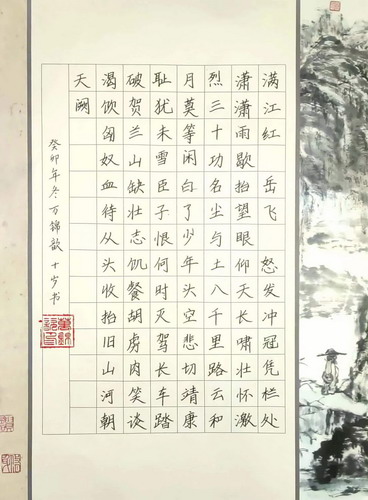 满江红 岳飞 怒发冲冠凭栏处
潇潇雨歇抬望眼仰天长啸壮怀激
烈三十功名尘与土八千里路云和
月莫等闲白了少年头空悲切靖康
耻犹未雪臣子恨何时灭驾长车踏
破贺兰山缺壮志饥餐胡虏肉笑谈
渴饮匈奴血待从头收拾旧山河朝
天阙
癸卯年冬万锦歆十岁书